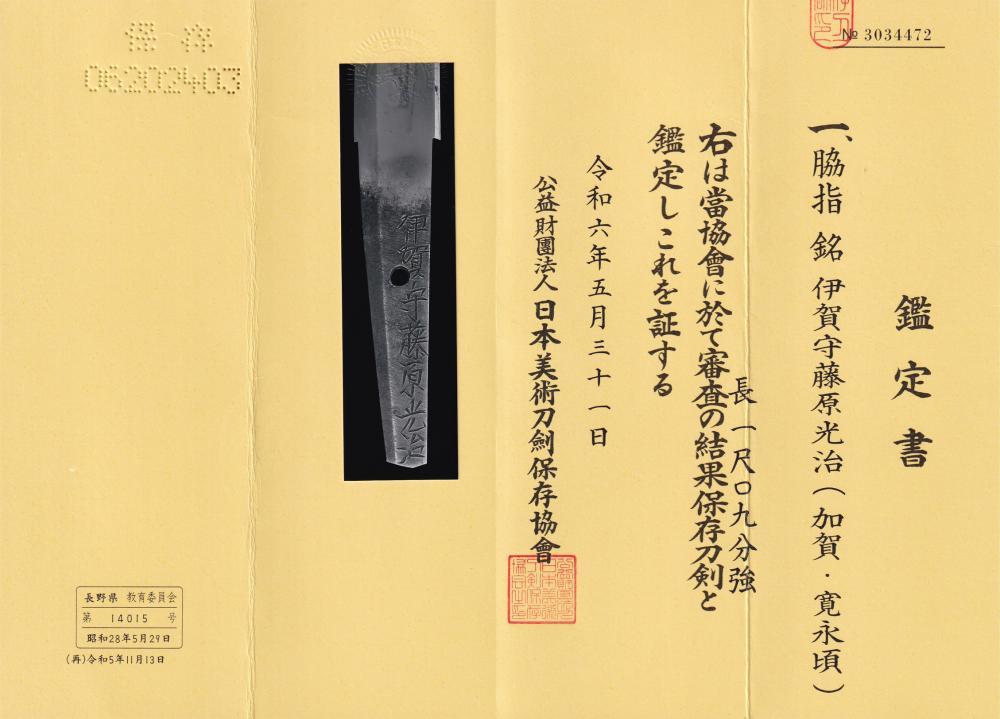 № 3034472
鑑定書
一、脇指 銘 伊賀守藤原光治(加賀・寛永頃)
長一尺〇九分強
右は當協會に於て審査の結果保存刀剣と
鑑定しこれを証する
令和六年五月三十一日
公益財團法人日本美術刀劍保存協會
伊賀守藤原光治
保存
06202403
長野県 教育委員会
第 14015 号
昭和28年5月29日
(再)令和5年11月13日